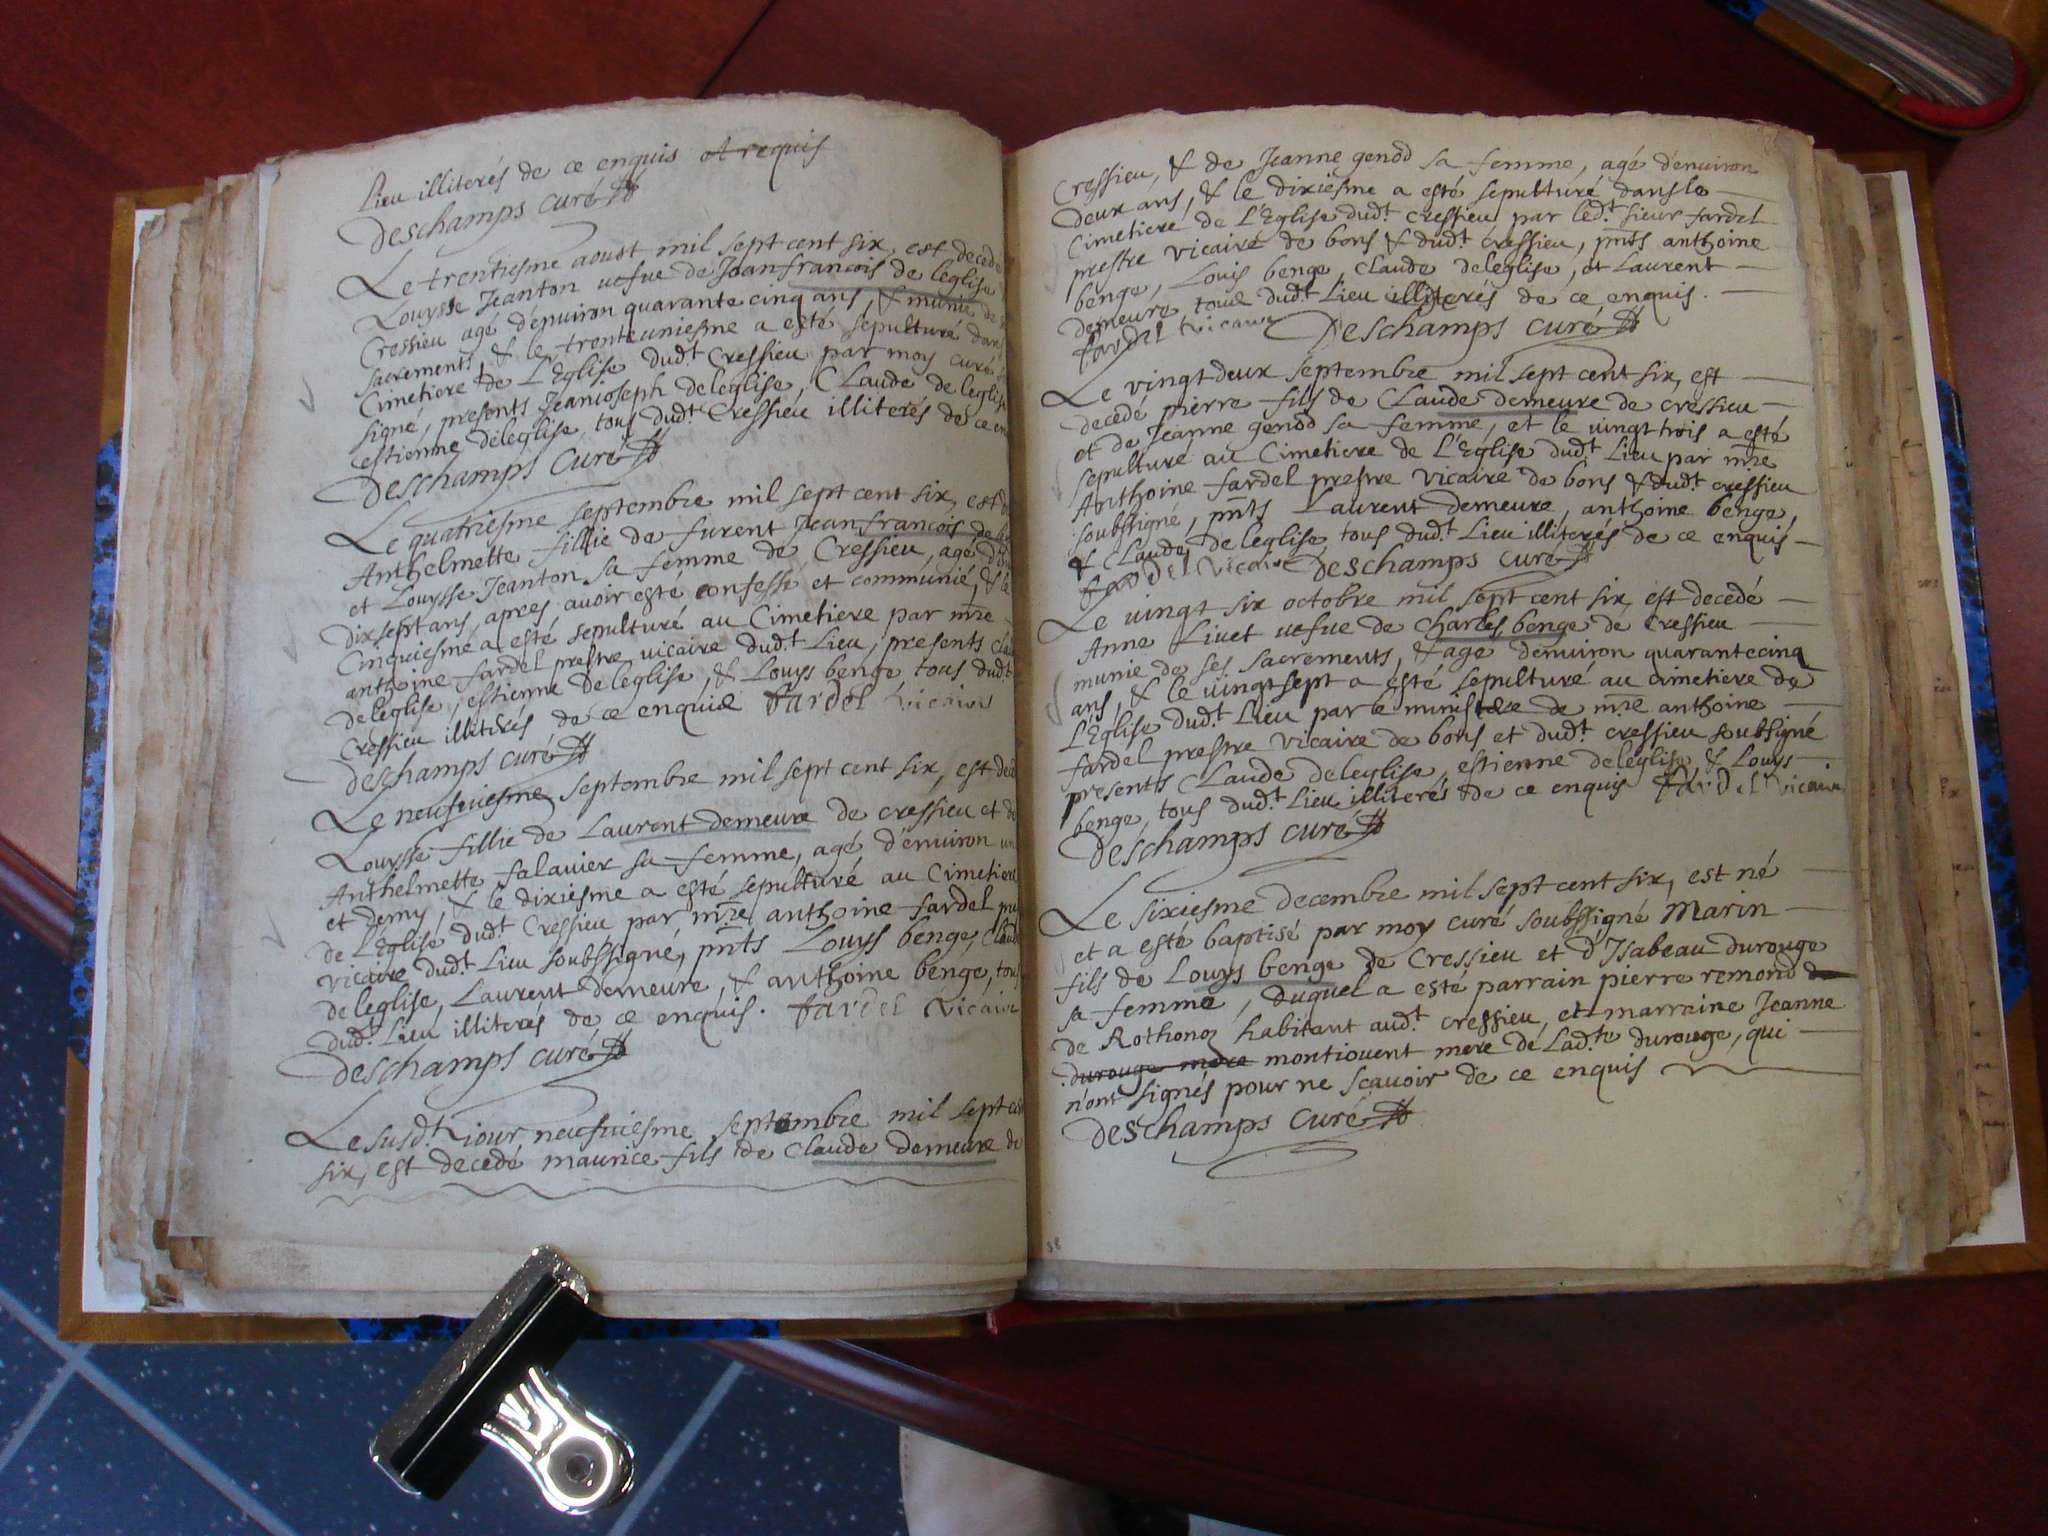 Lieu illiterés de ce enquis et requis
Deschamps curé
Le trentiesme aoust mil sept cent six, est decede
Louysse Jeanton vefue de Jeanfrancois de leglise
Cressieu agé d'enuiron quarante cinq ans, & munie de
sacrements & le trenteuniesme a esté sepulturé dans
Cimetiere de L'Eglise dud.t Cressieu par moy curé
signé, presents Jeanioseph deleglise, Claude de leglise
estienne deleglise, tous dud.t Cressieu illiterés de ce en
Deschamps curé
Le quatriesme septembre mil sept cent six, est
Anthelmette fillie de furent Jeanfrancois de
et Louysse Jeanton sa femme de Cressieu, agé d'
dixsept ans, apres auoir esté confessé et communié, & le
Cinquiesme a esté sepulturé au Cimetiere par mre
anthoine fardel prestre vicaire dud.t Lieu, presents
deleglise, estienne deleglise, & Louys benge tous dud.t
Cressieu illiterés de ce enquis fardel vicaire
Deschamps curé
Le neufuiesme septembre mil sept cent six, est
Louysse fillie de Laurent demeure de cressieu et de
Anthelmette falauier sa femme, agé d'enuiron un
et demy, & le dixiesme a esté sepulturé au Cimetiere
de L'Eglise dud.t Cressieu par mre anthoine fardel
vicaire dud.t Lieu soubssigné, pnts Louys benge, Claude
deleglise, Laurent demeure, & anthoine benge, tous
dud.t Lieu illiterés de ce enquis. fardel vicaire
Deschamps curé
Le susd.t iour neufuiesme septembre mil sept
six, est decedé maurice fils de Claude demeure de
Cressieu, & de Jeanne genod sa femme, agé d'enuiron
deux ans, & le dixiesme a esté sepulturé dans le
Cimetiere de L'Eglise dud.t cressieu par led.t sieur fardel
prestre vicaire de bons & dud.t cressieu, pnts anthoine
benge, Louis benge, Claude deleglise, et Laurent
demeure tous dud.t Lieu illiterés de ce enquis.
fardel vicaire Deschamps curé
Le vingt deux septembre mil sept cent six, est
decedé pierre fils de Claude demeure de cressieu
et de Jeanne genod sa femme, et le vingt trois a esté
sepulturé au Cimetiere de L'Eglise dud.t Lieu par mre
Anthoine fardel prestre vicaire de bons & dud.t cressieu
soubssigné, pnts Laurent demeure, anthoine benge,
& Claude deleglise tous dud.t Lieu illiterés de ce enquis
fardel vicaire Deschamps curé
Le vingt six octobre mil sept cent six, est decedé
Anne Liuet vefue de Charles benge de Cressieu
munie de ses sacrements, & agé d'enuiron quarantecinq
ans, & le vingt sept a esté sepulturé au cimetiere de
L'Eglise dud.t Lieu par le ministere de mre anthoine
fardel prestre vicaire de bons et dud.t cressieu soubsigné
presents Claude deleglise, estienne deleglise & Louys
benge, tous dud.t Lieu illiterés de ce enquis fardel vicaire
Deschamps curé
Le sixiesme decembre mil sept cent six, est né
et a esté baptisé par moy curé soubssigné Marin
fils de Louys benge de Cressieu et d'Isabeau durouge
sa femme, duquel a esté parrain pierre remond
de Rothonoz habitant aud.t cressieu, et marraine Jeanne
durouge mere montiouent mere de Lad.te durouge, qui
n'ont signés pour ne scauoir de ce enquis
Deschamps curé